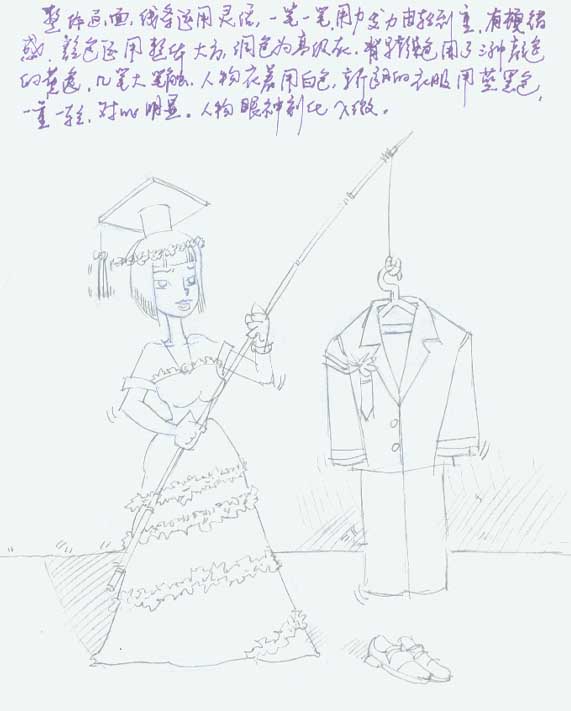 整体画面,线条运用灵活,一笔一笔,用力与力由轻到重,有模糊
感。颜色运用整体大方,调色为高级灰,背景颜色用了三种颜色
的蓝色,几笔大笔触。人物衣着用白色,新郎的衣服用蓝黑色,
一重一轻,对比明显。人物眼神刻化入微。